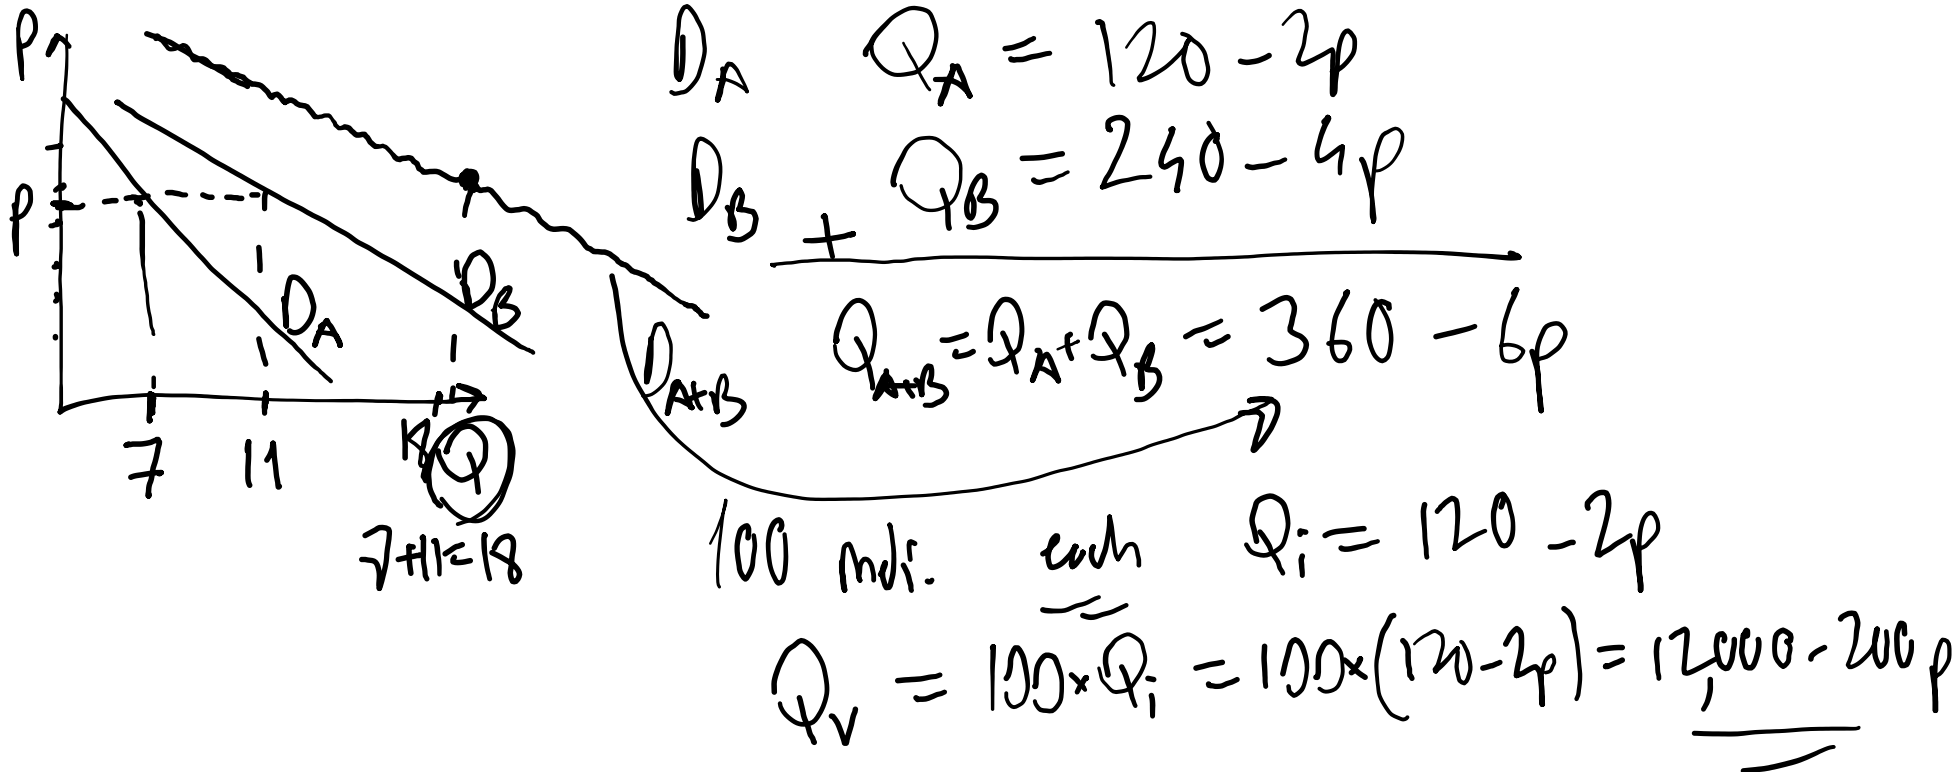 P
P
D_A
D_B
D_{A+B}
7 11 18 Q
7+11=18
D_A Q_A = 120 - 2p
D_B Q_B = 240 - 4p
+
Q_{A+B} = Q_A + Q_B = 360 - 6p
100 indi. each Q_i = 120 - 2p
= 100 × Q_i = 100 × (120 - 2p) = 12,000 - 200p